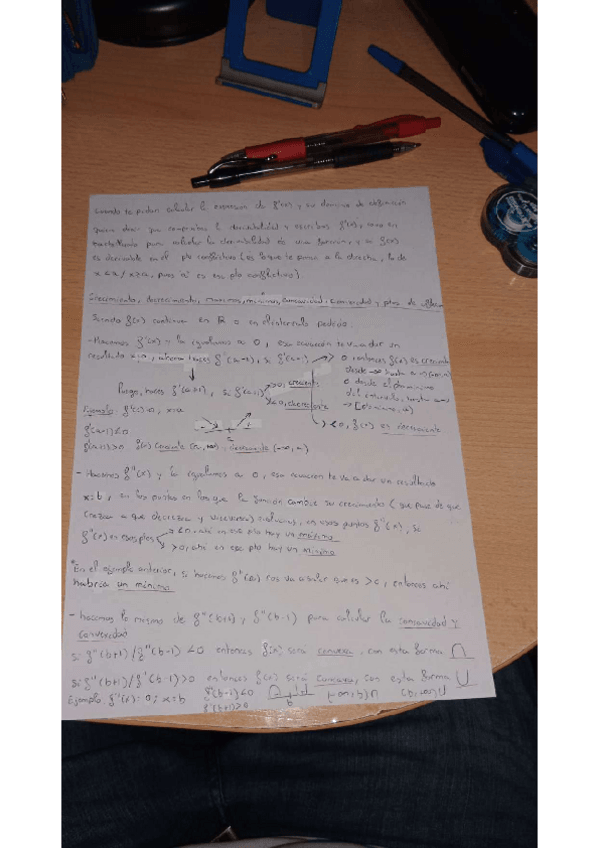 Cuando te pidan calcular la expresión de f'(x) y su dominio de definición
quiere decir que compruebes la derivabilidad y escribas f'(x), como en
para calcular la derivabilidad de una función, y si f(x)
es derivable en el pto conflictivo (es lo que te pone a la derecha, lo de
x<a / x>a, pues a es ese pto conflictivo).
Crecimiento, decrecimiento, máximos, mínimos, concavidad, convexidad y ptos de
Siendo f(x) continua en R o en el intervalo pedido
- Hacemos f'(x) y la igualamos a 0, esa ecuación te va a dar un
resultado x=a, ahora haces f'(a-1), si f'(a-1) > 0, entonces f(x) es creciente
desde -∞ hasta a → (-∞, a)
o desde el dominio
del intervalo, hasta a
→ [dominio, a)
< 0, f(x) es decreciente
Luego, haces f'(a+1), si f'(a+1) > 0, creciente
< 0, decreciente
Ejemplo: f'(x)=0; x=a
f'(a-1)<0
f'(a+1)>0 f(x) Creciente (a, ∞), decreciente (-∞, a)
- Hacemos f''(x) y la igualamos a 0, esa ecuación te va a dar un resultado
x=b, en los puntos en los que la función cambie su crecimiento (que pase de que
crezca a que decrezca y viceversa) evaluamos, en esos puntos f''(x), si
f''(x) en esos ptos < 0, ahí en ese pto hay un máximo
> 0, ahí en ese pto hay un mínimo
*En el ejemplo anterior, si hacemos f''(a) nos va a salir que es > 0, entonces ahí
habría un mínimo
- hacemos lo mismo de f''(b+1) y f''(b-1) para calcular la concavidad y
convexidad
Si f''(b+1)/f''(b-1) < 0 entonces f(x) será convexa, con esta forma ∩
Si f''(b+1)/f''(b-1) > 0 entonces f(x) será cóncava, con esta forma ∪
Ejemplo: f''(x)=0; x=b f''(b-1)<0 b (-∞, b) ∩ (b, ∞) ∪
f''(b+1)>0